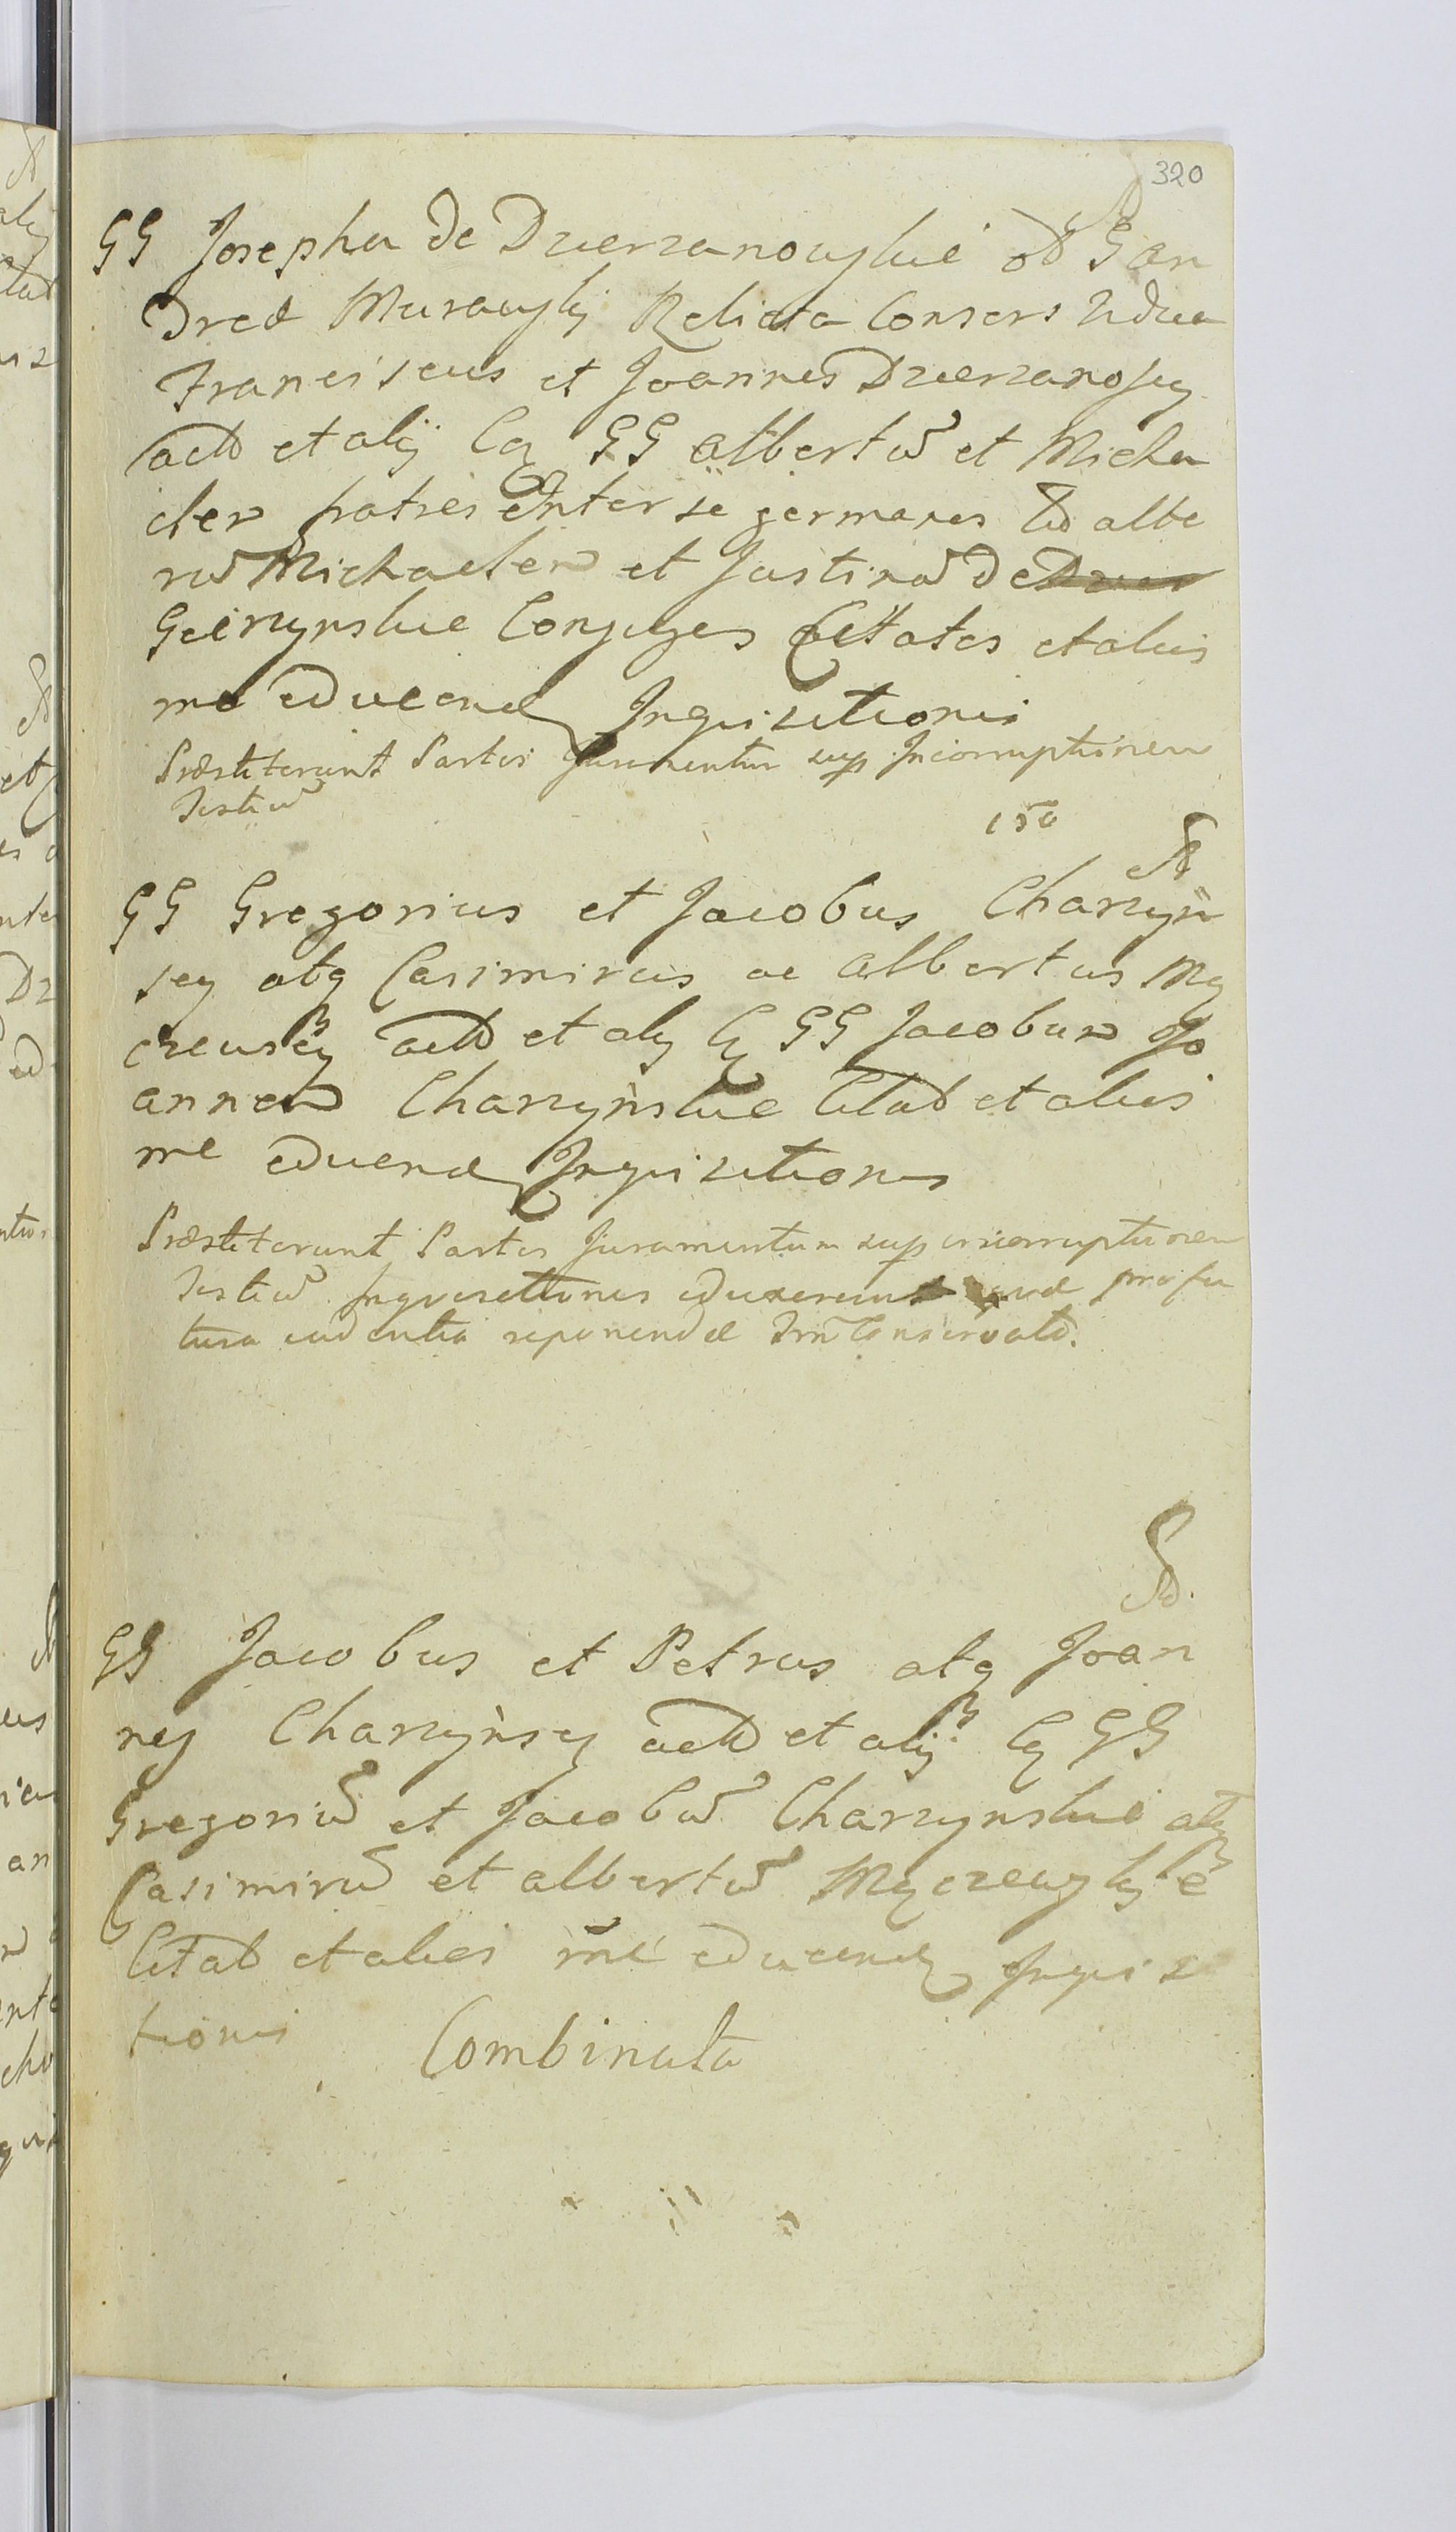 320
GG Josepha de Dzierzanowskie od G an
drea Murawskij Relicta Consors Vidua
Franciscus et Joannes Dzierzanoscy
act et alij Cq GG albertū et Micha
elem fratres inter se germanes
Michaelem et Justinā de
Conjuges Citatos et alias
me educend Inquisitionis
Præstiterunt Partes Juramentum sup Incorruptionem
Testiū
150
GG Gregorius et Jacobus Charzyń
scy atq Casimirus ac albertus My
czewscy act et alij Cq GG Jacobum Jo
annem Charzyńskie Citat et alias
me educend Inquisitionis
Præstiterunt Partes Juramentum sup incorruptionem
Testiū Inquisitiones eduxerunt profu
tura evidentia reponendæ conservat.
GG Jacobus et Petrus atq Joan
nes Charzyńscy act et alij Cq GG
Gregoriū et Jacobū Charzynskie atq
Casimirū et albertū Myczewskie
Citat et alias me educend Inquisi
tionis Combinata